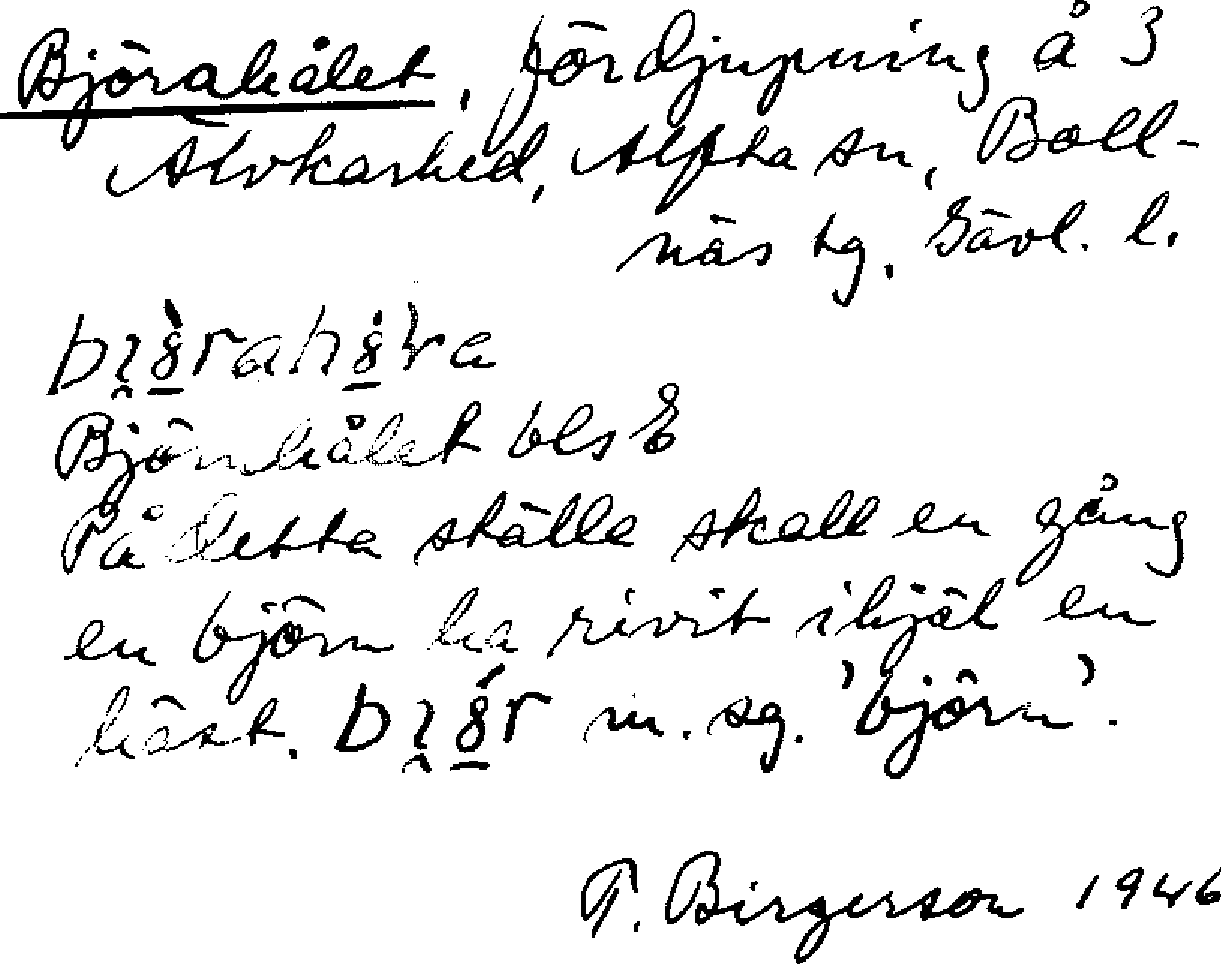 Björahålet, fördjupning å 3
Älvkarhed, Alfta sn, Boll-
näs tg, Gävl. l.
Björnhålet bls E
På detta ställe skall en gång
en björn ha rivit ihjäl en
häst. m. sg. 'björn'.
T. Birgerson 1946